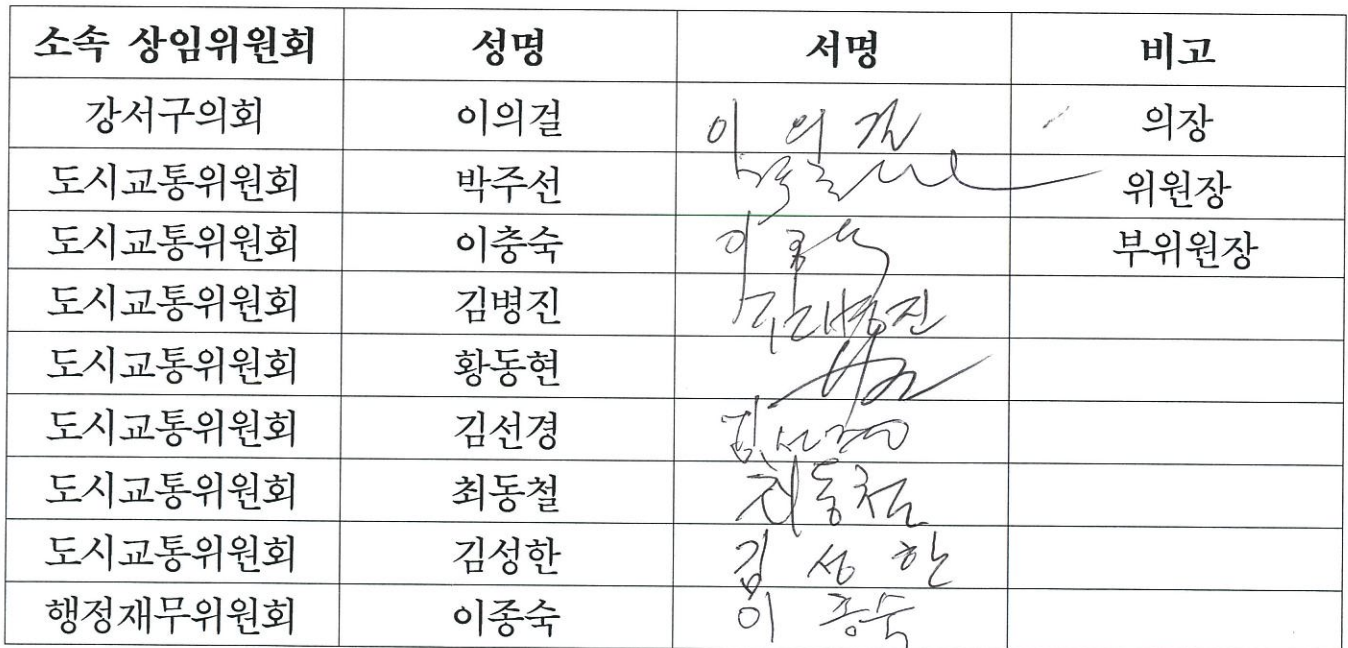 소속 상임위원회 성명 서명 비고
강서구의회 이의걸 이의걸 의장
도시교통위원회 박주선 위원장
도시교통위원회 이충숙 이충숙 부위원장
도시교통위원회 김병진 김병진
도시교통위원회 황동현
도시교통위원회 김선경 김선경
도시교통위원회 최동철 최동철
도시교통위원회 김성한 김성한
행정재무위원회 이종숙 이종숙